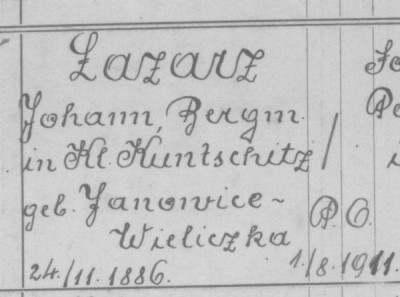 Lazarz
Johann, Bergm.
in Kl. Kuntschitz /
geb. Janowice-
Wieliczka
24./11. 1886. 1./8. 1911.